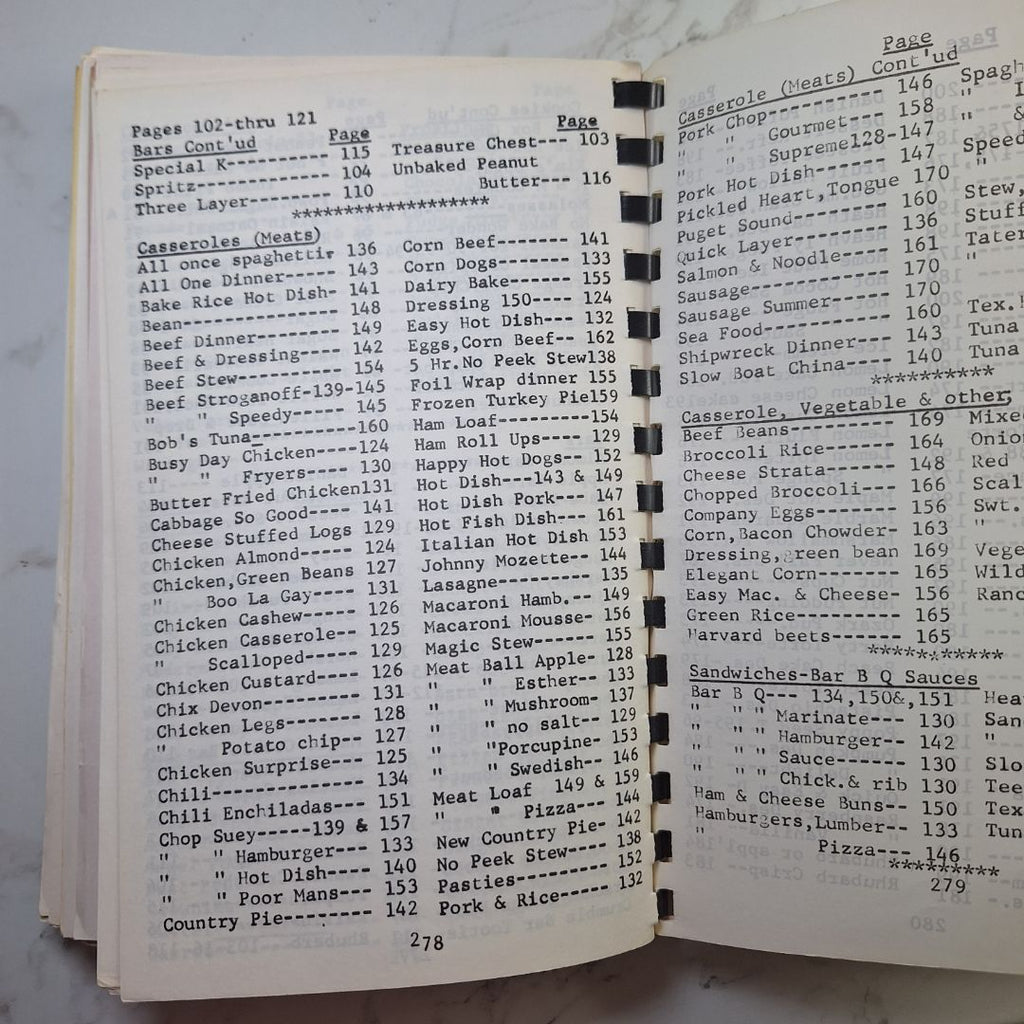 Pages 102-thru 121
Bars Cont'ud Page
Special K---------- 115
Spritz------------- 104
Three Layer-------- 110
Page
Treasure Chest--- 103
Unbaked Peanut
Butter--- 116
*******************
Casseroles (Meats)
All once spaghetti 136
All One Dinner----- 143
Bake Rice Hot Dish- 141
Bean--------------- 148
Beef Dinner-------- 149
Beef & Dressing---- 142
Beef Stew---------- 154
Beef Stroganoff-139-145
" " Speedy----- 145
Bob's Tuna----------160
Busy Day Chicken----124
" " Fryers---- 130
Butter Fried Chicken131
Cabbage So Good---- 141
Cheese Stuffed Logs 129
Chicken Almond----- 124
Chicken,Green Beans 127
" Boo La Gay---- 131
Chicken Cashew----- 126
Chicken Casserole-- 125
" Scalloped----- 129
Chicken Custard---- 126
Chix Devon--------- 131
Chicken Legs------- 128
" Potato chip-- 127
Chicken Surprise--- 125
Chili-------------- 134
Chili Enchiladas--- 151
Chop Suey-----139 & 157
" " Hamburger--- 133
" " Hot Dish---- 140
" " Poor Mans--- 153
Country Pie-------- 142
Corn Beef------- 141
Corn Dogs------- 133
Dairy Bake------ 155
Dressing 150---- 124
Easy Hot Dish--- 132
Eggs,Corn Beef-- 162
5 Hr.No Peek Stew138
Foil Wrap dinner 155
Frozen Turkey Pie159
Ham Loaf--------154
Ham Roll Ups---- 129
Happy Hot Dogs-- 152
Hot Dish---143 & 149
Hot Dish Pork--- 147
Hot Fish Dish--- 161
Italian Hot Dish 153
Johnny Mozette-- 144
Lasagne--------- 135
Macaroni Hamb.-- 149
Macaroni Mousse- 156
Magic Stew------ 155
Meat Ball Apple- 128
" " Esther-- 133
" " Mushroom- 137
" " no salt-- 129
" "Porcupine- 153
" " Swedish-- 146
Meat Loaf 149 & 159
" " Pizza--- 144
New Country Pie- 142
No Peek Stew---- 138
Pasties--------- 152
Pork & Rice----- 132
278
Page
Casserole (Meats) Cont'ud
Pork Chop---------- 146
" " Gourmet---- 158
" " Supreme128-147
Pork Hot Dish----- 147
Pickled Heart,Tongue 170
Puget Sound-------- 160
Quick Layer-------- 136
Salmon & Noodle---- 161
Sausage------------ 170
Sausage Summer----- 170
Sea Food----------- 160
Shipwreck Dinner--- 143
Slow Boat China---- 140
Spagh
"
" &
Speed
"
Stew,
Stuff
Tater
"
Tex.
Tuna
Tuna
**********
Casserole, Vegetable & other
Beef Beans--------- 169
Broccoli Rice------ 164
Cheese Strata------ 148
Chopped Broccoli--- 166
Company Eggs------- 156
Corn,Bacon Chowder- 163
Dressing,green bean 169
Elegant Corn------- 165
Easy Mac. & Cheese- 156
Green Rice--------- 165
Harvard beets------ 165
Mixe
Onio
Red
Scal
Swt.
"
Vege
Wild
Ranc
***********
Sandwiches-Bar B Q Sauces
Bar B Q--- 134,150&,151
" " " Marinate--- 130
" " " Hamburger-- 142
" " " Sauce------ 130
" " " Chick.& rib 130
Ham & Cheese Buns-- 150
Hamburgers,Lumber-- 133
" Pizza--- 146
Hea
San
"
Slo
Tee
Tex
Tun
*********
279